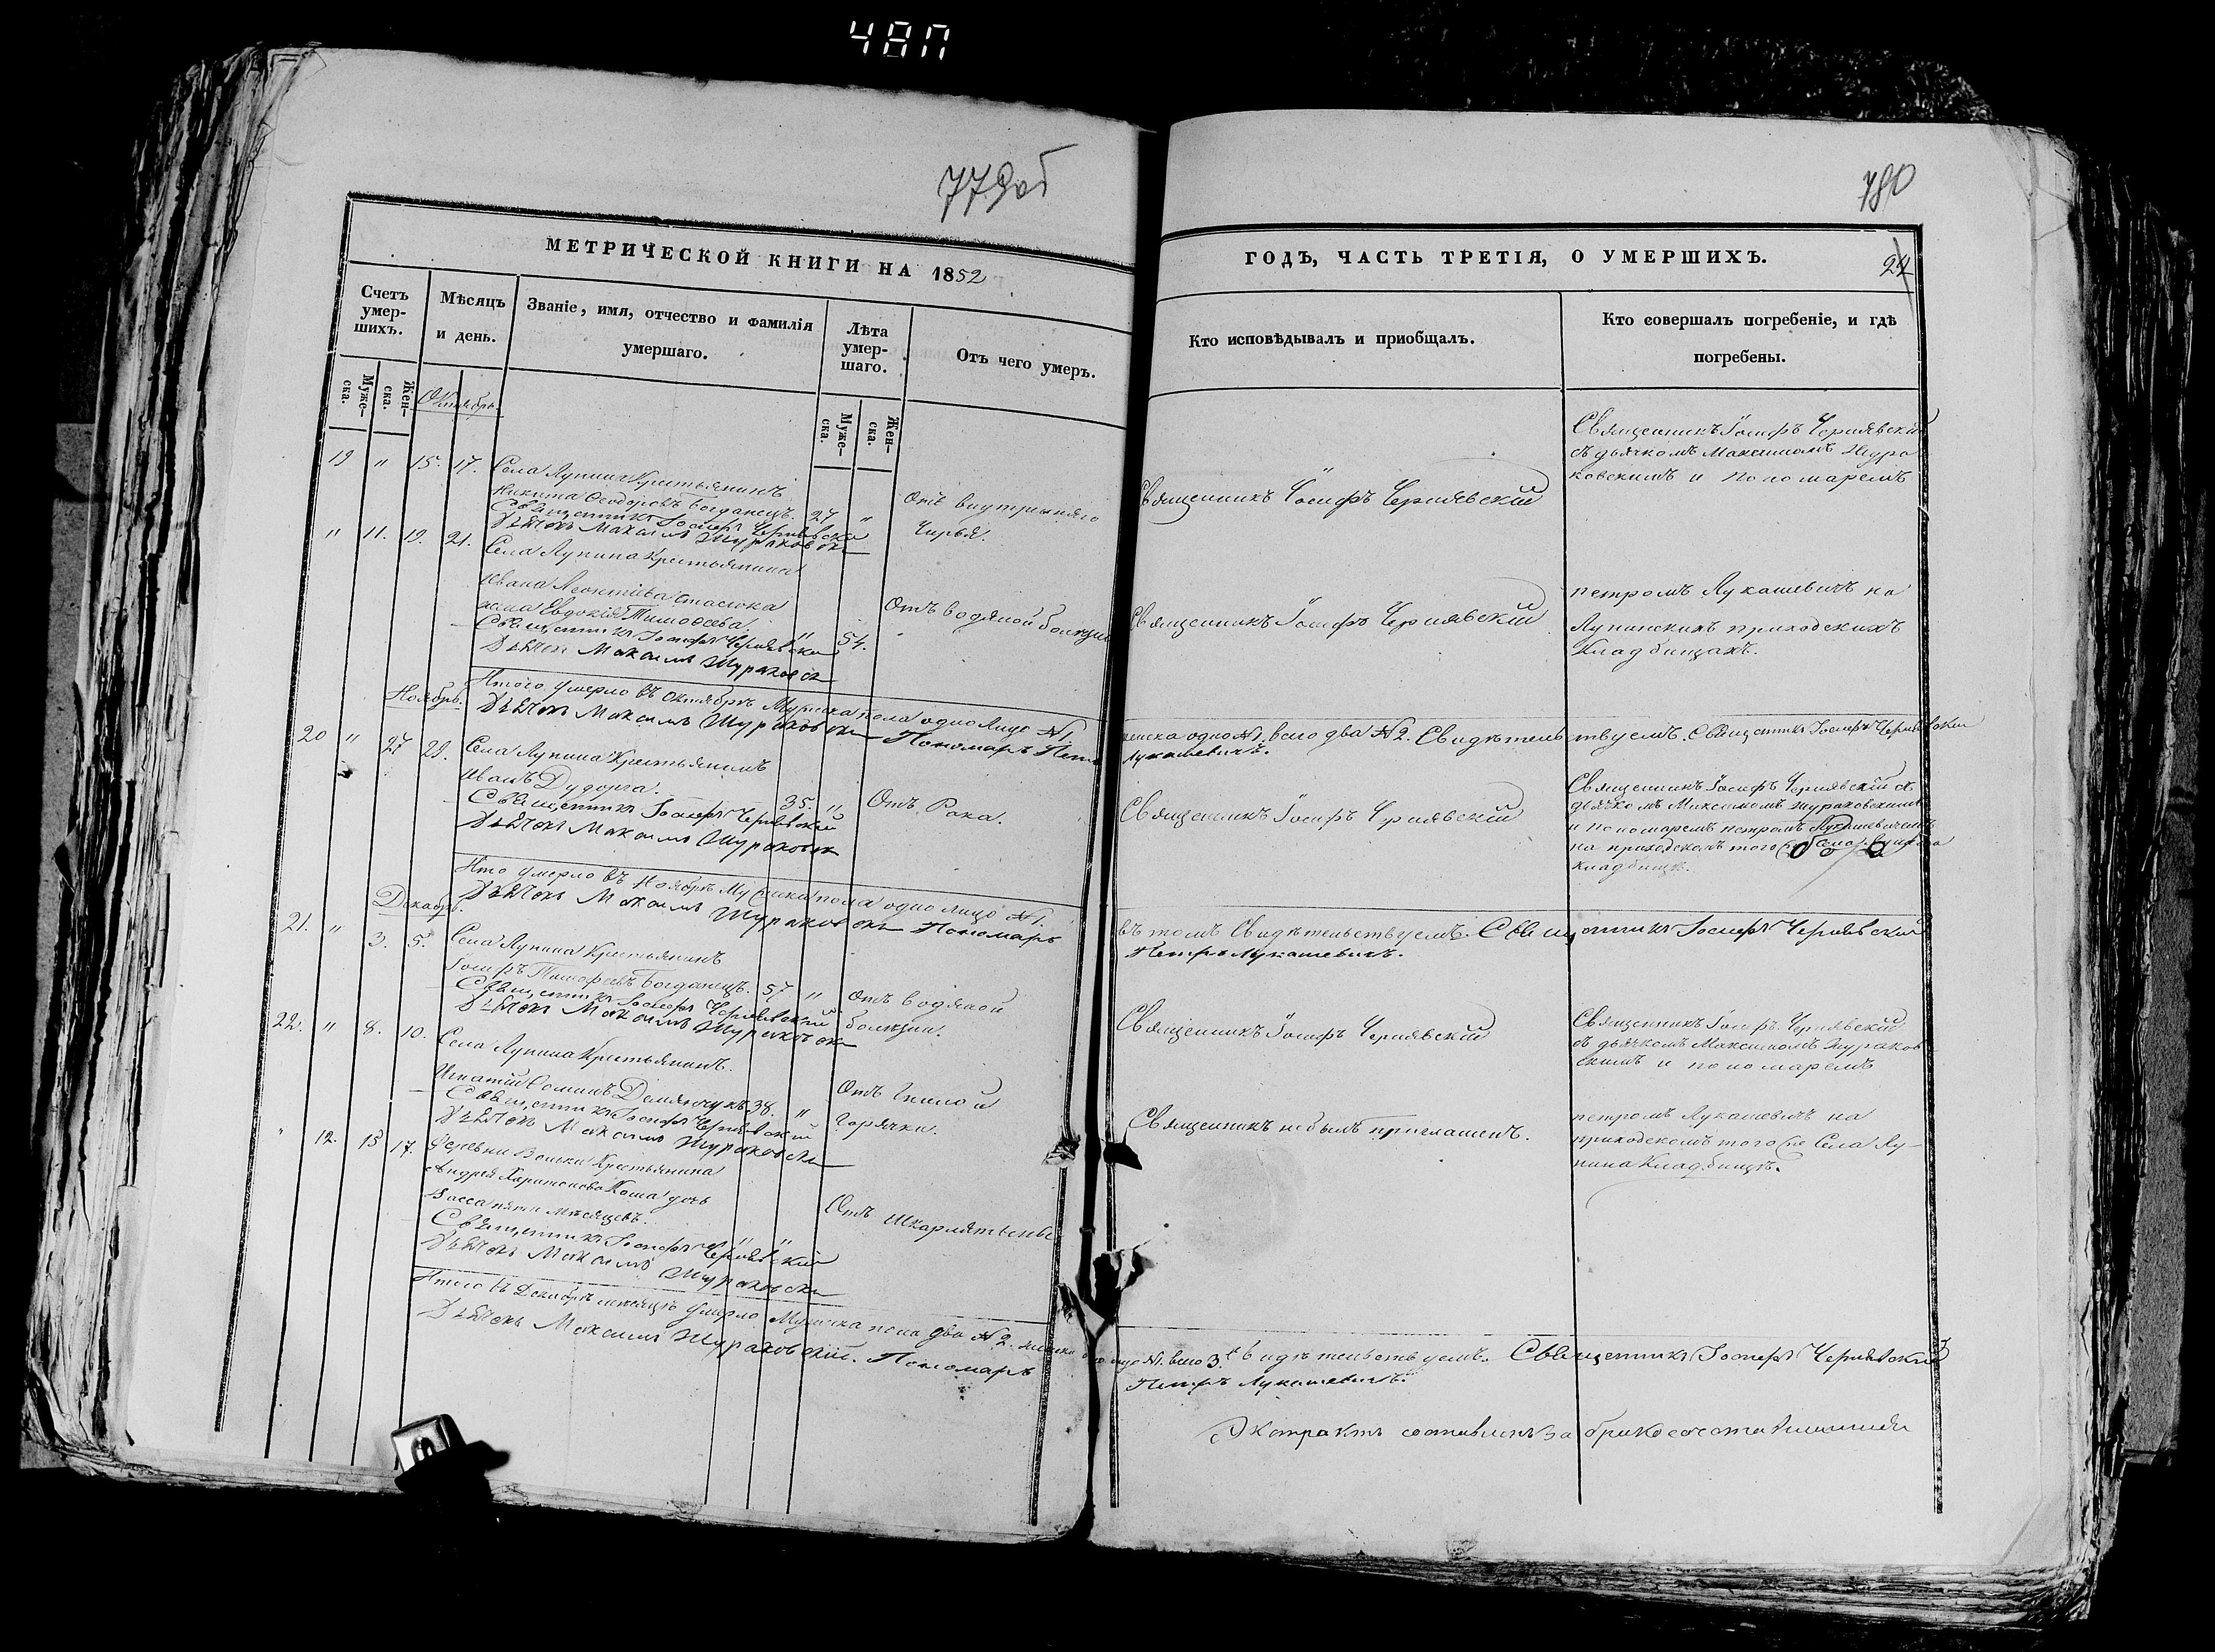 48П
779об
МЕТРИЧЕСКОЙ КНИГИ НА 1852
Счетъ умер-шихъ.
Мѣсяцъ и день.
Званіе, имя, отчество и фамилія умершаго.
Лѣта умер-шаго.
Отъ чего умеръ.
Муже-ска.
Жен-ска.
Муже-ска.
Жен-ска.
Октябрь.
19 " 15. 17. Села Лунина Крестьянинъ
Никита Ѳеодоровъ Богданецъ. 27 "
Отъ внутренняго
Чирья.
Священникъ Іосифъ Чернявскій
Дьячокъ Максимъ Жураковскій
" 11. 19. 21. Села Лунина Крестьянина
Ивана Леонтіева Стасюка
жена Евдокія Тимоѳеева. " 54.
Отъ водяной болезни
Священникъ Іосифъ Чернявскій
Дьячокъ Максимъ Жураковскій
Итого умерло въ Октябрѣ Мужеска пола одно лицо №1.
Дьячокъ Максимъ Жураковскій Пономарь
Ноябрь.
20 " 27 29. Села Лунина Крестьянинъ
Иванъ Дударга. 35. "
Отъ Рака.
Священникъ Іосифъ Чернявскій
Дьячокъ Максимъ Жураковскій
умерло въ Ноябрѣ Мужеска пола одно лицо №1.
Дьячокъ Максимъ Жураковскій Пономарь
Декабрь.
21. " 3. 5. Села Лунина Крестьянинъ
Іосифъ Тимофеевъ Богданецъ. 57 "
Отъ водяной
болезни.
Священникъ Іосифъ Чернявскій
Дьячокъ Максимъ Жураковскій
22. " 8. 10. Села Лунина Крестьянинъ.
Игнатій Ѳоминъ Демянчукъ 38. "
Отъ гнилой
Горячки.
Священникъ Іосифъ Чернявскій
Дьячокъ Максимъ Жураковскій
" 12. 15 17. Деревни Вольки Крестьянина
Андрея Харитонова Коша дочь
Васса пяти мѣсяцевъ. " "
Отъ шкарлятыны
Священникъ Іосифъ Чернявскій
Дьячокъ Максимъ Жураковскій
Итого въ Декабрѣ мѣсяцѣ умерло Мужеска пола два №2.
Дьячокъ Максимъ Жураковскій. Пономарь
780
ГОДЪ, ЧАСТЬ ТРЕТІЯ, О УМЕРШИХЪ.
24
Кто исповѣдывалъ и приобщалъ.
Кто совершалъ погребеніе, и гдѣ погребены.
Священникъ Іосифъ Чернявскій
Священникъ Іосифъ Чернявскій
съ дьячкомъ Максимомъ Жура
ковскимъ и пономаремъ
Священникъ Іосифъ Чернявскій
петромъ Лукашевичъ на
Лунинскихъ приходскихъ
Кладбищахъ.
женска одно №1. всего два №2. Свидѣтельствуемъ. Священникъ Іосифъ Чернявскій
Лукашевичъ.
Священникъ Іосифъ Чернявскій
Священникъ Іосифъ Чернявскій съ
дьячкомъ Максимомъ Жураковскимъ
и пономаремъ петромъ Лукашевичемъ
на приходскомъ того
кладбищѣ.
въ томъ Свидѣтельствуемъ. Священникъ Іосифъ Чернявскій
Петръ Лукашевичъ.
Священникъ Іосифъ Чернявскій
Священникъ Іосифъ Чернявскій
съ дьячкомъ Максимомъ Жураков
скимъ и пономаремъ
Священникъ небылъ приглашенъ.
петромъ Лукашевичъ на
приходскомъ того же Села Лу-
нина Кладбищѣ.
№1. всего 3. Свидѣтельствуемъ. Священникъ Іосифъ Чернявскій
Петръ Лукашевичъ.
Экстрактъ составленъ